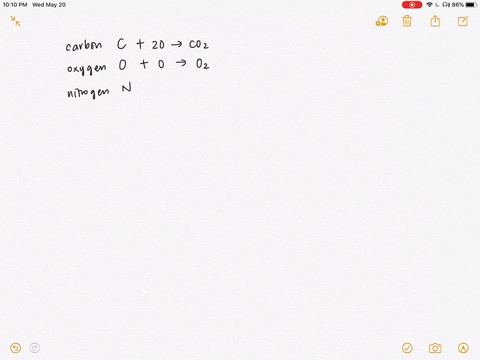 10:10 PM Wed May 20
86%
carbon C + 2O → CO₂
oxygen O + O → O₂
nitrogen N